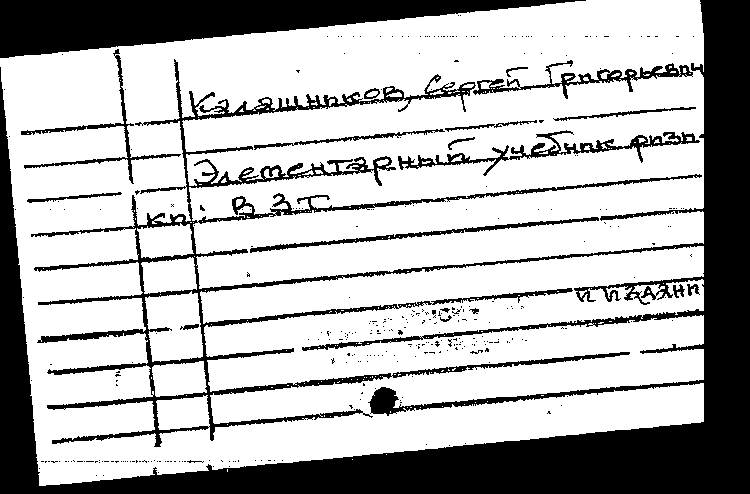 Калашников, Сергей Григорьевич
Элементарный учебник физи-
ки: В 3 т.
и издани